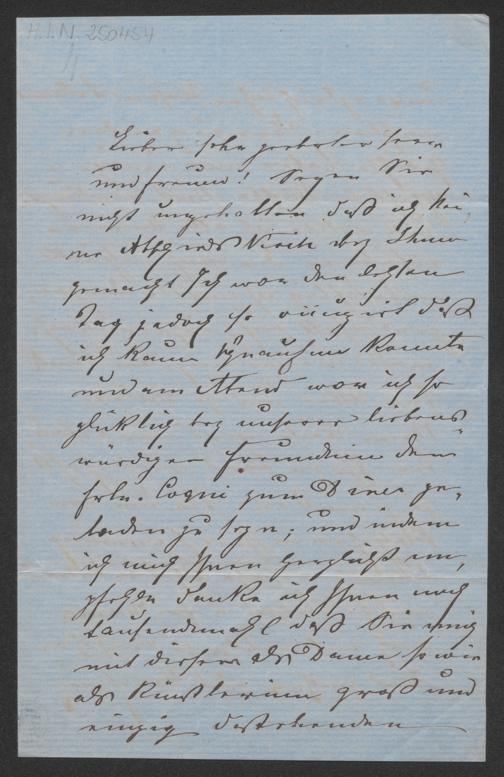 H.I.N. 250454
Lieber sehr geehrter Herr
und Freund! Seyen Sie
nicht ungehalten daß ich kei„
ne Abschieds Visite bey Ihnen
gemacht Ich war den letzten
Tag jedoch so daß
ich kaum konnte
und am Abend war ich so
glüklich bey unserer liebens„
würdigen Freundinn dem
Frln. Cogni zum Diner ge„
laden zu seyn; und indem
ich mich Ihnen herzlichst em„
pfehle danke ich Ihnen noch
tausendmahl daß Sie mich
mit dieser als Dame so wie
als Künstlerinn groß und
einzig dastehenden